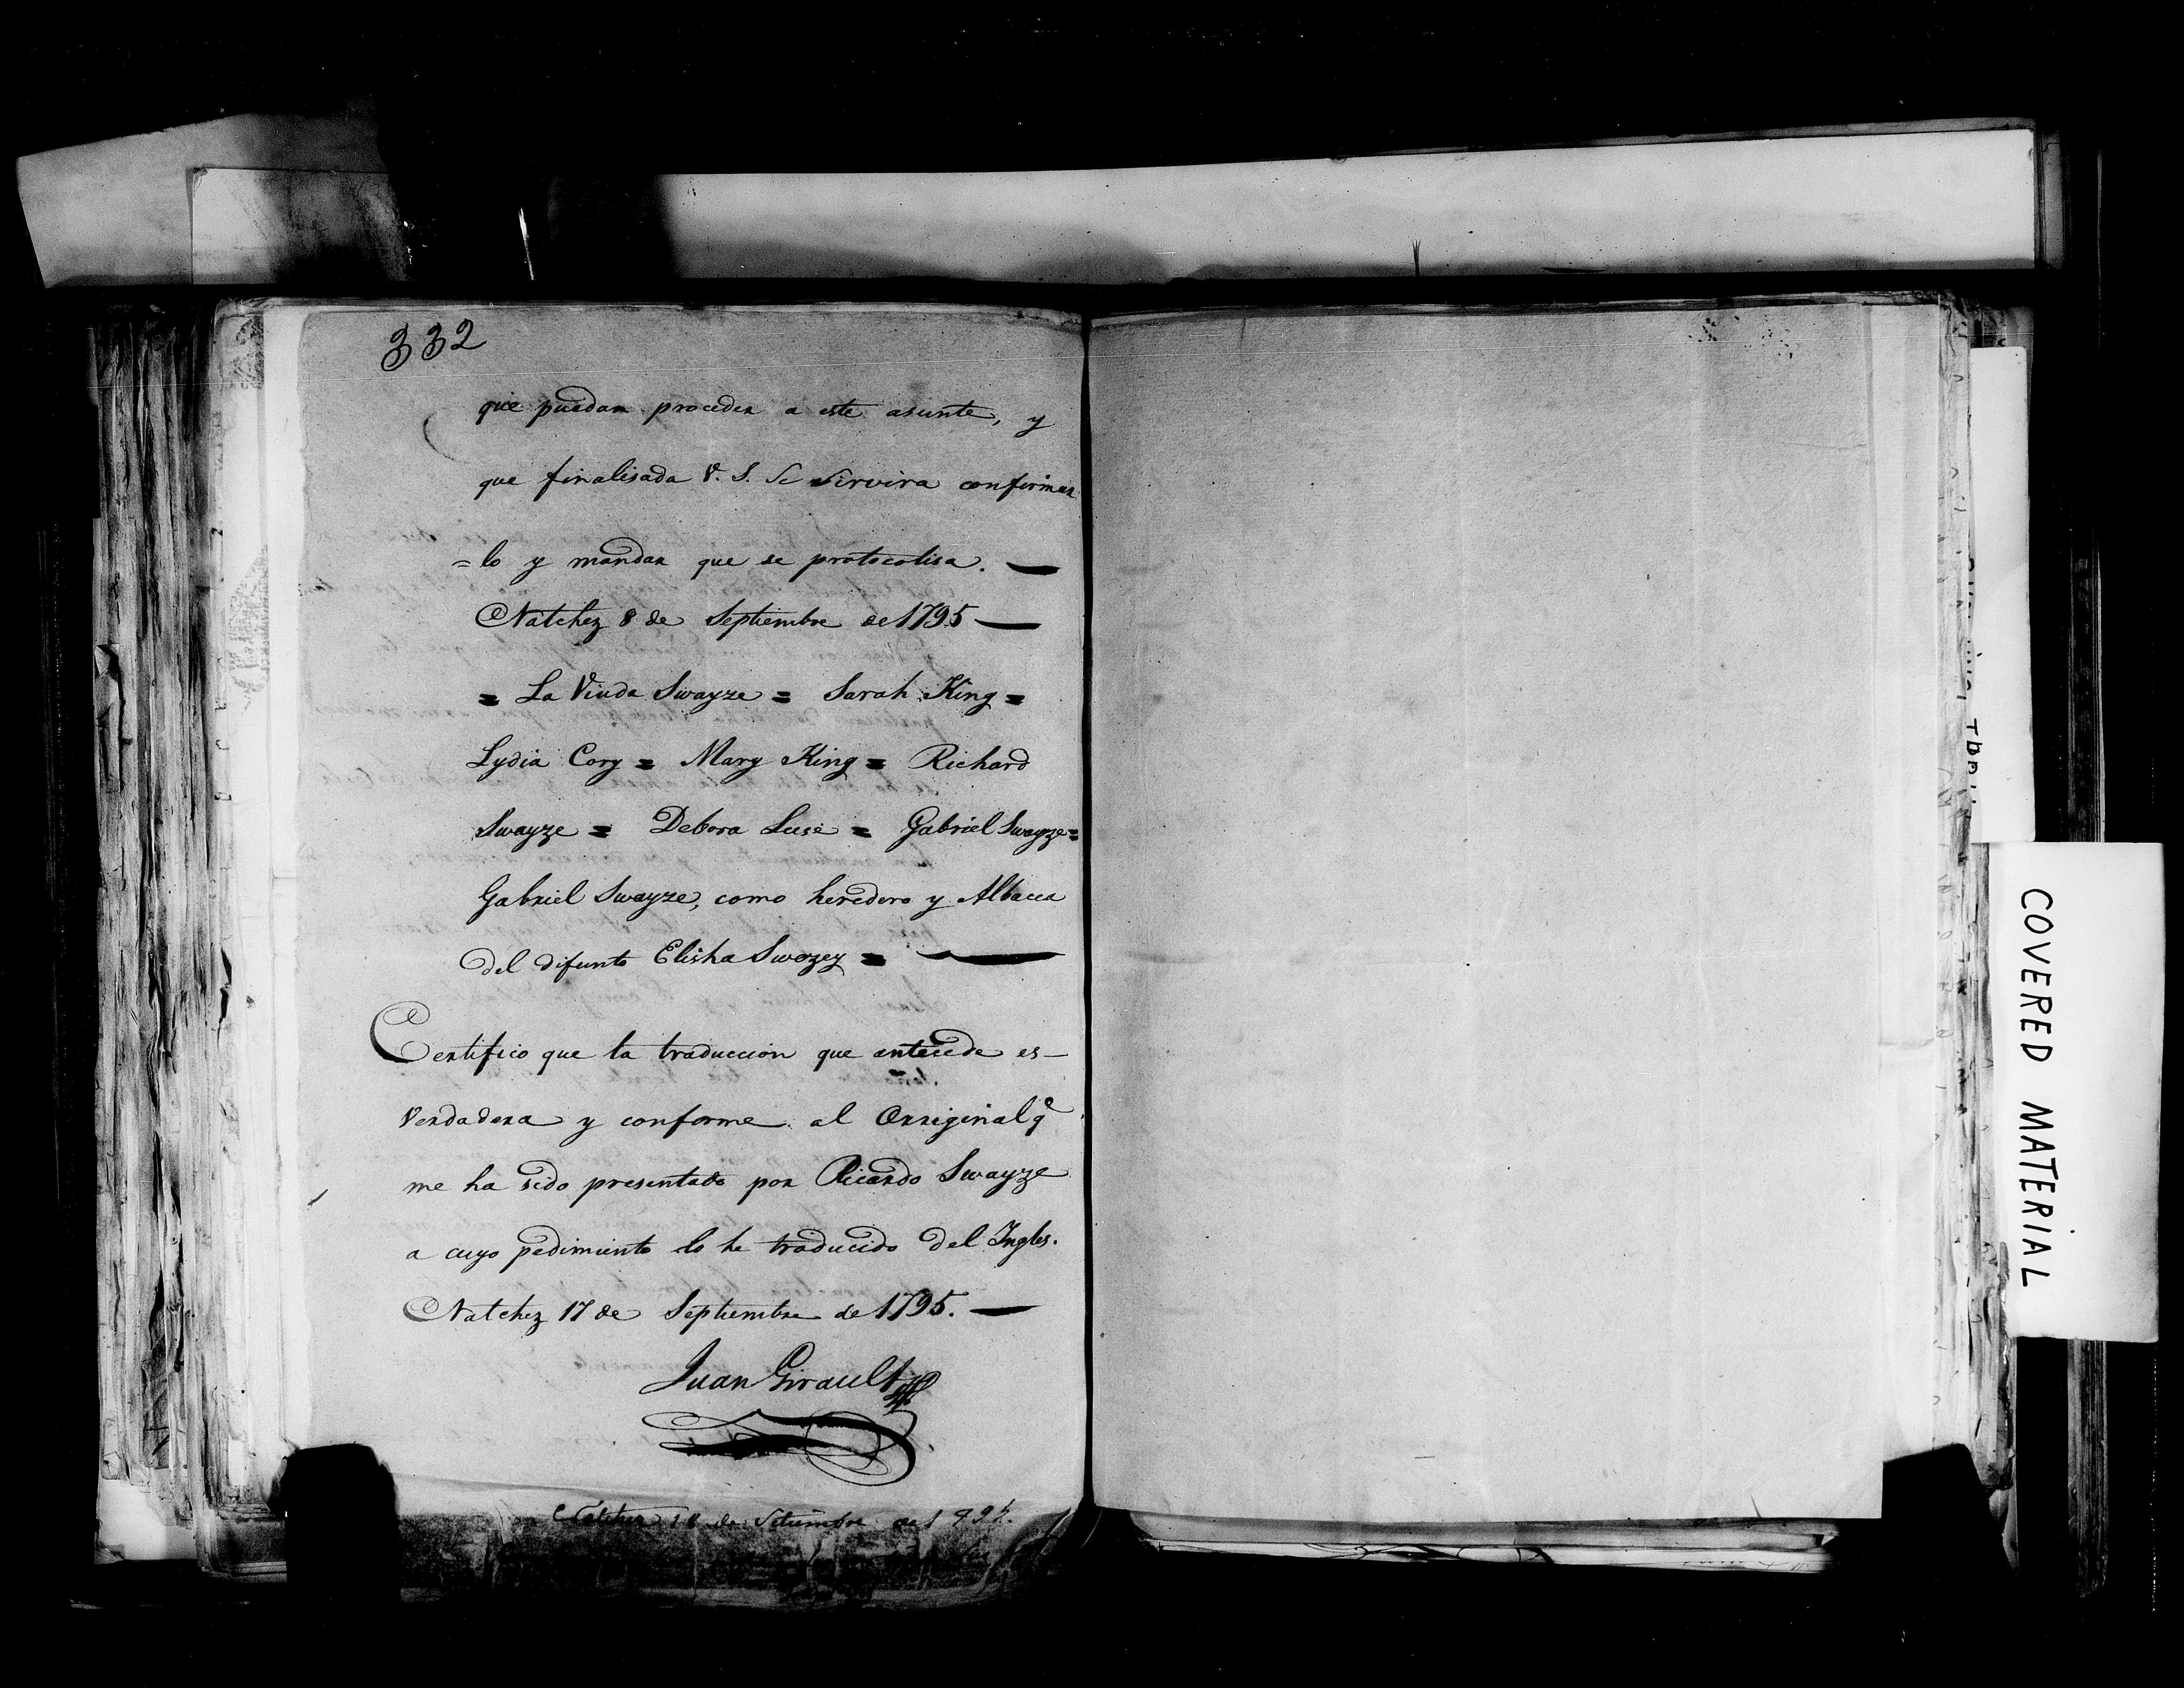 332
que puedan proceder a este asunte, y
que finalisada V. S. Se Servira confirmar
=lo y mandar que se protocolisa. —
Natchez 8 de Septiembre de 1795 —
= La Viuda Swayze = Sarah King =
Lydia Cory = Mary King = Richard
Swayze = Debora Luse = Gabriel Swayze =
Gabriel Swayze, como heredero y Albacea
del difunto Elisha Swazey = —
Certifico que la traduccion que antecede es —
Verdadera y conforme al Orriginal qe
me ha sido presentado por Ricardo Swayze
a cuyo pedimiento lo he traducido del Ingles.
Natchez 17 de Septiembre de 1795. —
Juan Girault
Natchez 18 de Setiembre de 1795.
COVERED MATERIAL